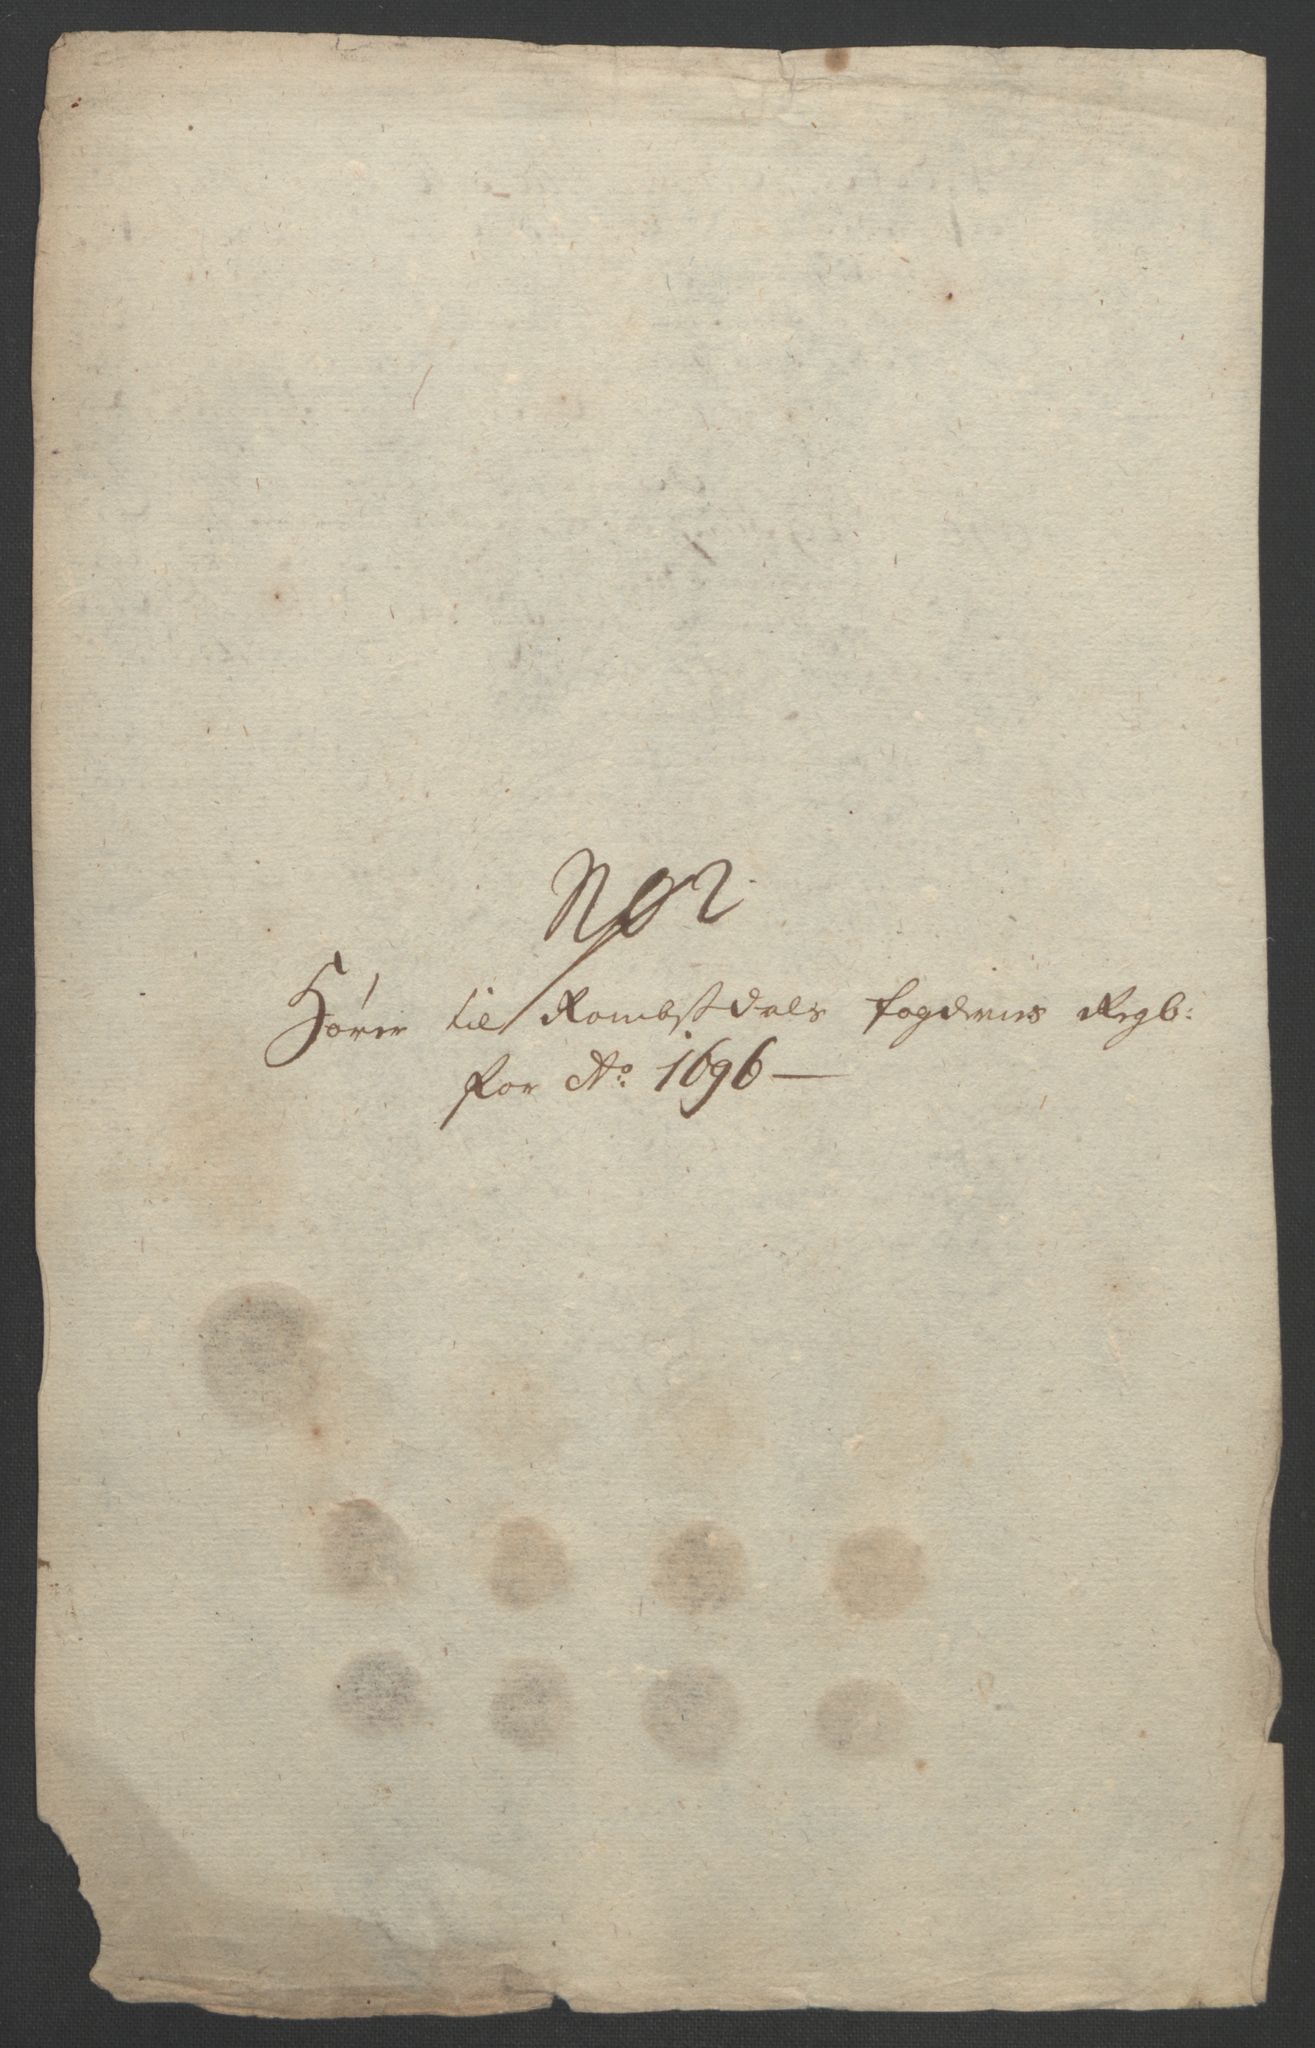 No 2
Hörer til Rombsdals fogderies Regb:
for Ao: 1696